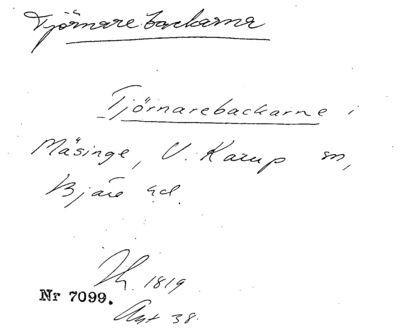 Tjörnarebackarne
Tjörnarebackarne i
Mäsinge, V. Karup sn,
Bjäre hd.
1819
Nr 7099.
Akt 38.